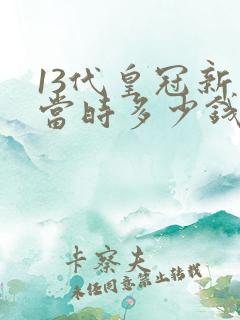 13代皇冠新
當時多少錢
卡察夫
未經同意禁止轉載